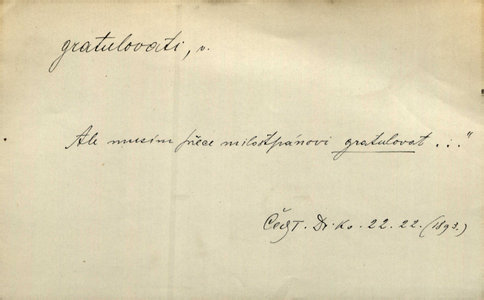 gratulovati, v.
Ale musím přece milostpánovi gratulovat ..."
Čech. Dr. Kv. 22. 22. (1893.)